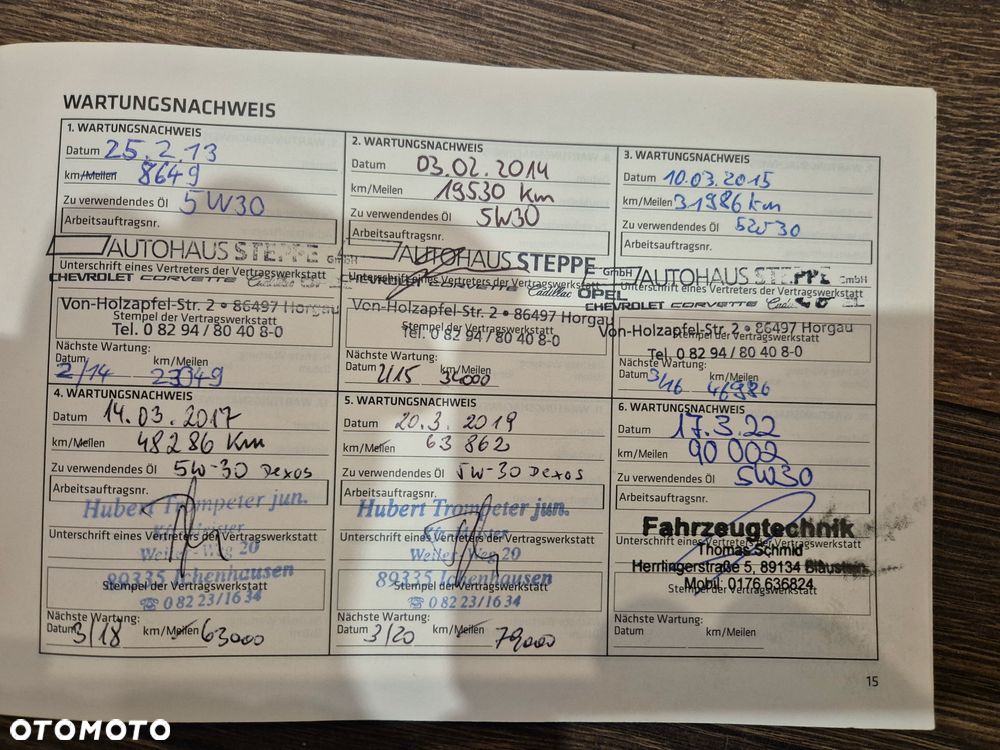 WARTUNGSNACHWEIS
1. WARTUNGSNACHWEIS
Datum 25.2.13
km/Meilen 8649
Zu verwendendes Öl 5W30
Arbeitsauftragsnr.
AUTOHAUS STEPPE GmbH
Unterschrift eines Vertreters der Vertragswerkstatt
CHEVROLET CORVETTE Cadillac
Von-Holzapfel-Str. 2 • 86497 Horgau
Stempel der Vertragswerkstatt
Tel. 0 82 94 / 80 40 8-0
Nächste Wartung:
Datum km/Meilen
2/14 23049
2. WARTUNGSNACHWEIS
Datum 03.02.2014
km/Meilen 19530 km
Zu verwendendes Öl 5W30
Arbeitsauftragsnr.
AUTOHAUS STEPPE GmbH
Unterschrift eines Vertreters der Vertragswerkstatt
CHEVROLET CORVETTE Cadillac OPEL
Von-Holzapfel-Str. 2 • 86497 Horgau
Stempel der Vertragswerkstatt
Tel. 0 82 94 / 80 40 8-0
Nächste Wartung:
Datum km/Meilen
2/15 34000
3. WARTUNGSNACHWEIS
Datum 10.03.2015
km/Meilen 31986 km
Zu verwendendes Öl 5W30
Arbeitsauftragsnr.
AUTOHAUS STEPPE GmbH
Unterschrift eines Vertreters der Vertragswerkstatt
CHEVROLET CORVETTE Cadillac
Von-Holzapfel-Str. 2 • 86497 Horgau
Stempel der Vertragswerkstatt
Tel. 0 82 94 / 80 40 8-0
Nächste Wartung:
Datum km/Meilen
3/16 46986
4. WARTUNGSNACHWEIS
Datum 14.03.2017
km/Meilen 48286 km
Zu verwendendes Öl 5W-30 Dexos
Arbeitsauftragsnr.
Hubert Trompeter jun.
Unterschrift eines Vertreters der Vertragswerkstatt
Weiler Weg 20
89335 Ichenhausen
Stempel der Vertragswerkstatt
☎ 0 82 23/16 34
Nächste Wartung:
Datum 3/18 km/Meilen 63000
5. WARTUNGSNACHWEIS
Datum 20.3.2019
km/Meilen 63 862
Zu verwendendes Öl 5W-30 Dexos
Arbeitsauftragsnr.
Hubert Trompeter jun.
Unterschrift eines Vertreters der Vertragswerkstatt
Weiler Weg 20
89335 Ichenhausen
Stempel der Vertragswerkstatt
☎ 0 82 23/16 34
Nächste Wartung:
Datum 3/20 km/Meilen 79000
6. WARTUNGSNACHWEIS
Datum 17.3.22
km/Meilen 90 002
Zu verwendendes Öl 5W30
Arbeitsauftragsnr.
Fahrzeugtechnik
Unterschrift eines Vertreters der Vertragswerkstatt
Thomas Schmid
Herrlingerstraße 5, 89134 Blaustein
Mobil: 0176 636824
Stempel der Vertragswerkstatt
Nächste Wartung:
Datum km/Meilen
15
OTOMOTO